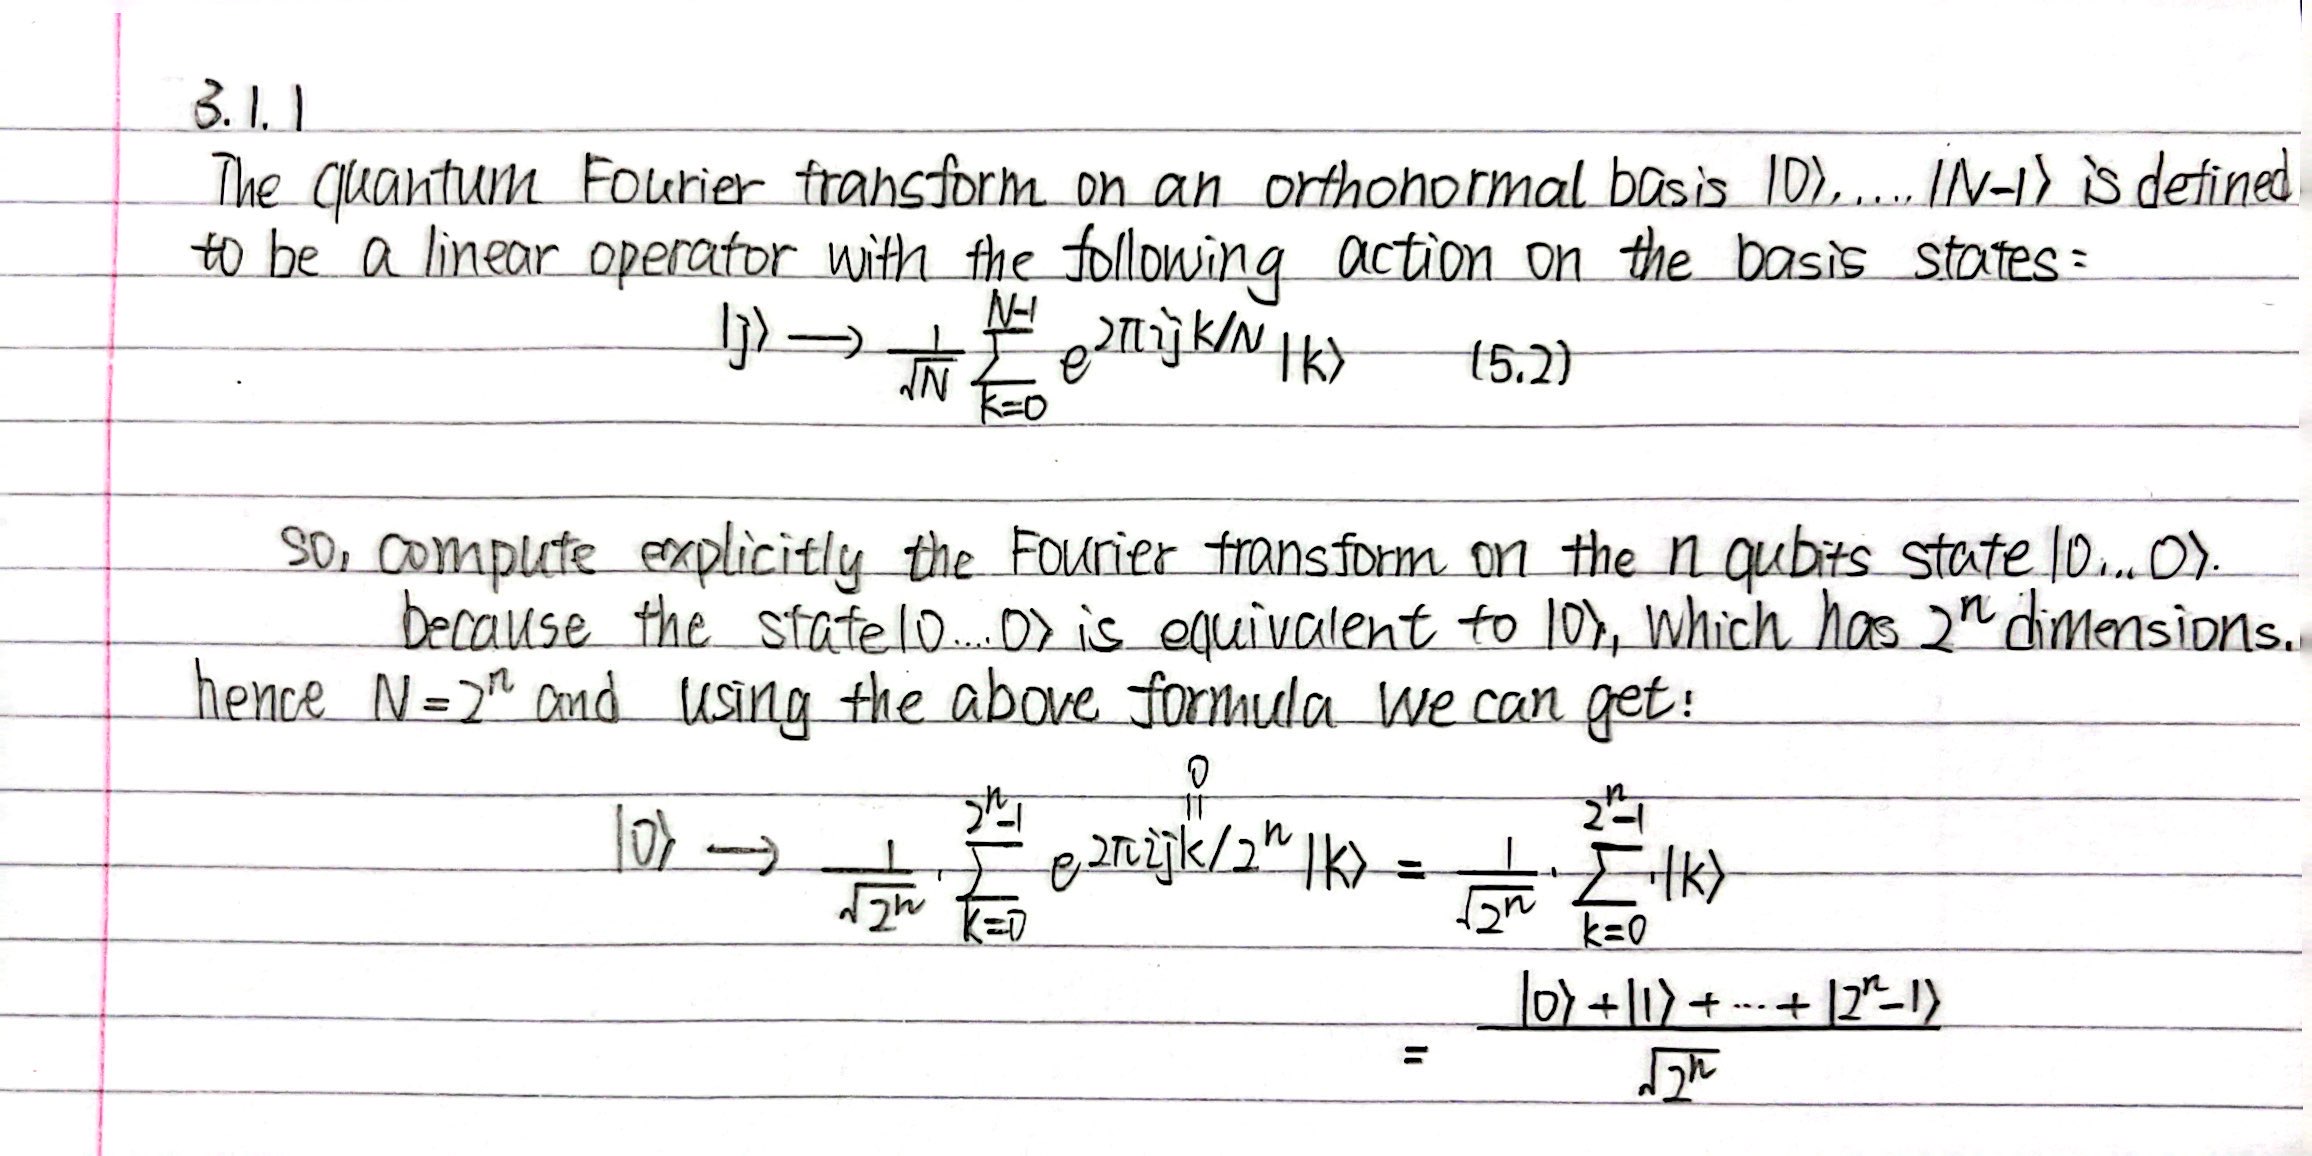 3.1.1
The quantum Fourier transform on an orthonormal basis |0⟩,....|N-1⟩ is defined
to be a linear operator with the following action on the basis states:
|j⟩ ⟶ 1/√N ∑_{k=0}^{N-1} e^{2πijk/N} |k⟩ (5.2)
so, compute explicitly the Fourier transform on the n qubits state |0...0⟩.
because the state |0....0⟩ is equivalent to |0⟩, which has 2^n dimensions.
hence N=2^n and using the above formula we can get:
|0⟩ ⟶ 1/√2^n · ∑_{k=0}^{2^n-1} e^{2πijk/2^n} |k⟩ = 1/√2^n · ∑_{k=0}^{2^n-1} ·|k⟩
0
=
= (|0⟩+|1⟩+...+|2^n-1⟩)/√2^n